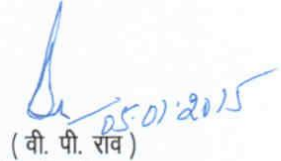 05.01.2015
( वी. पी. राव )